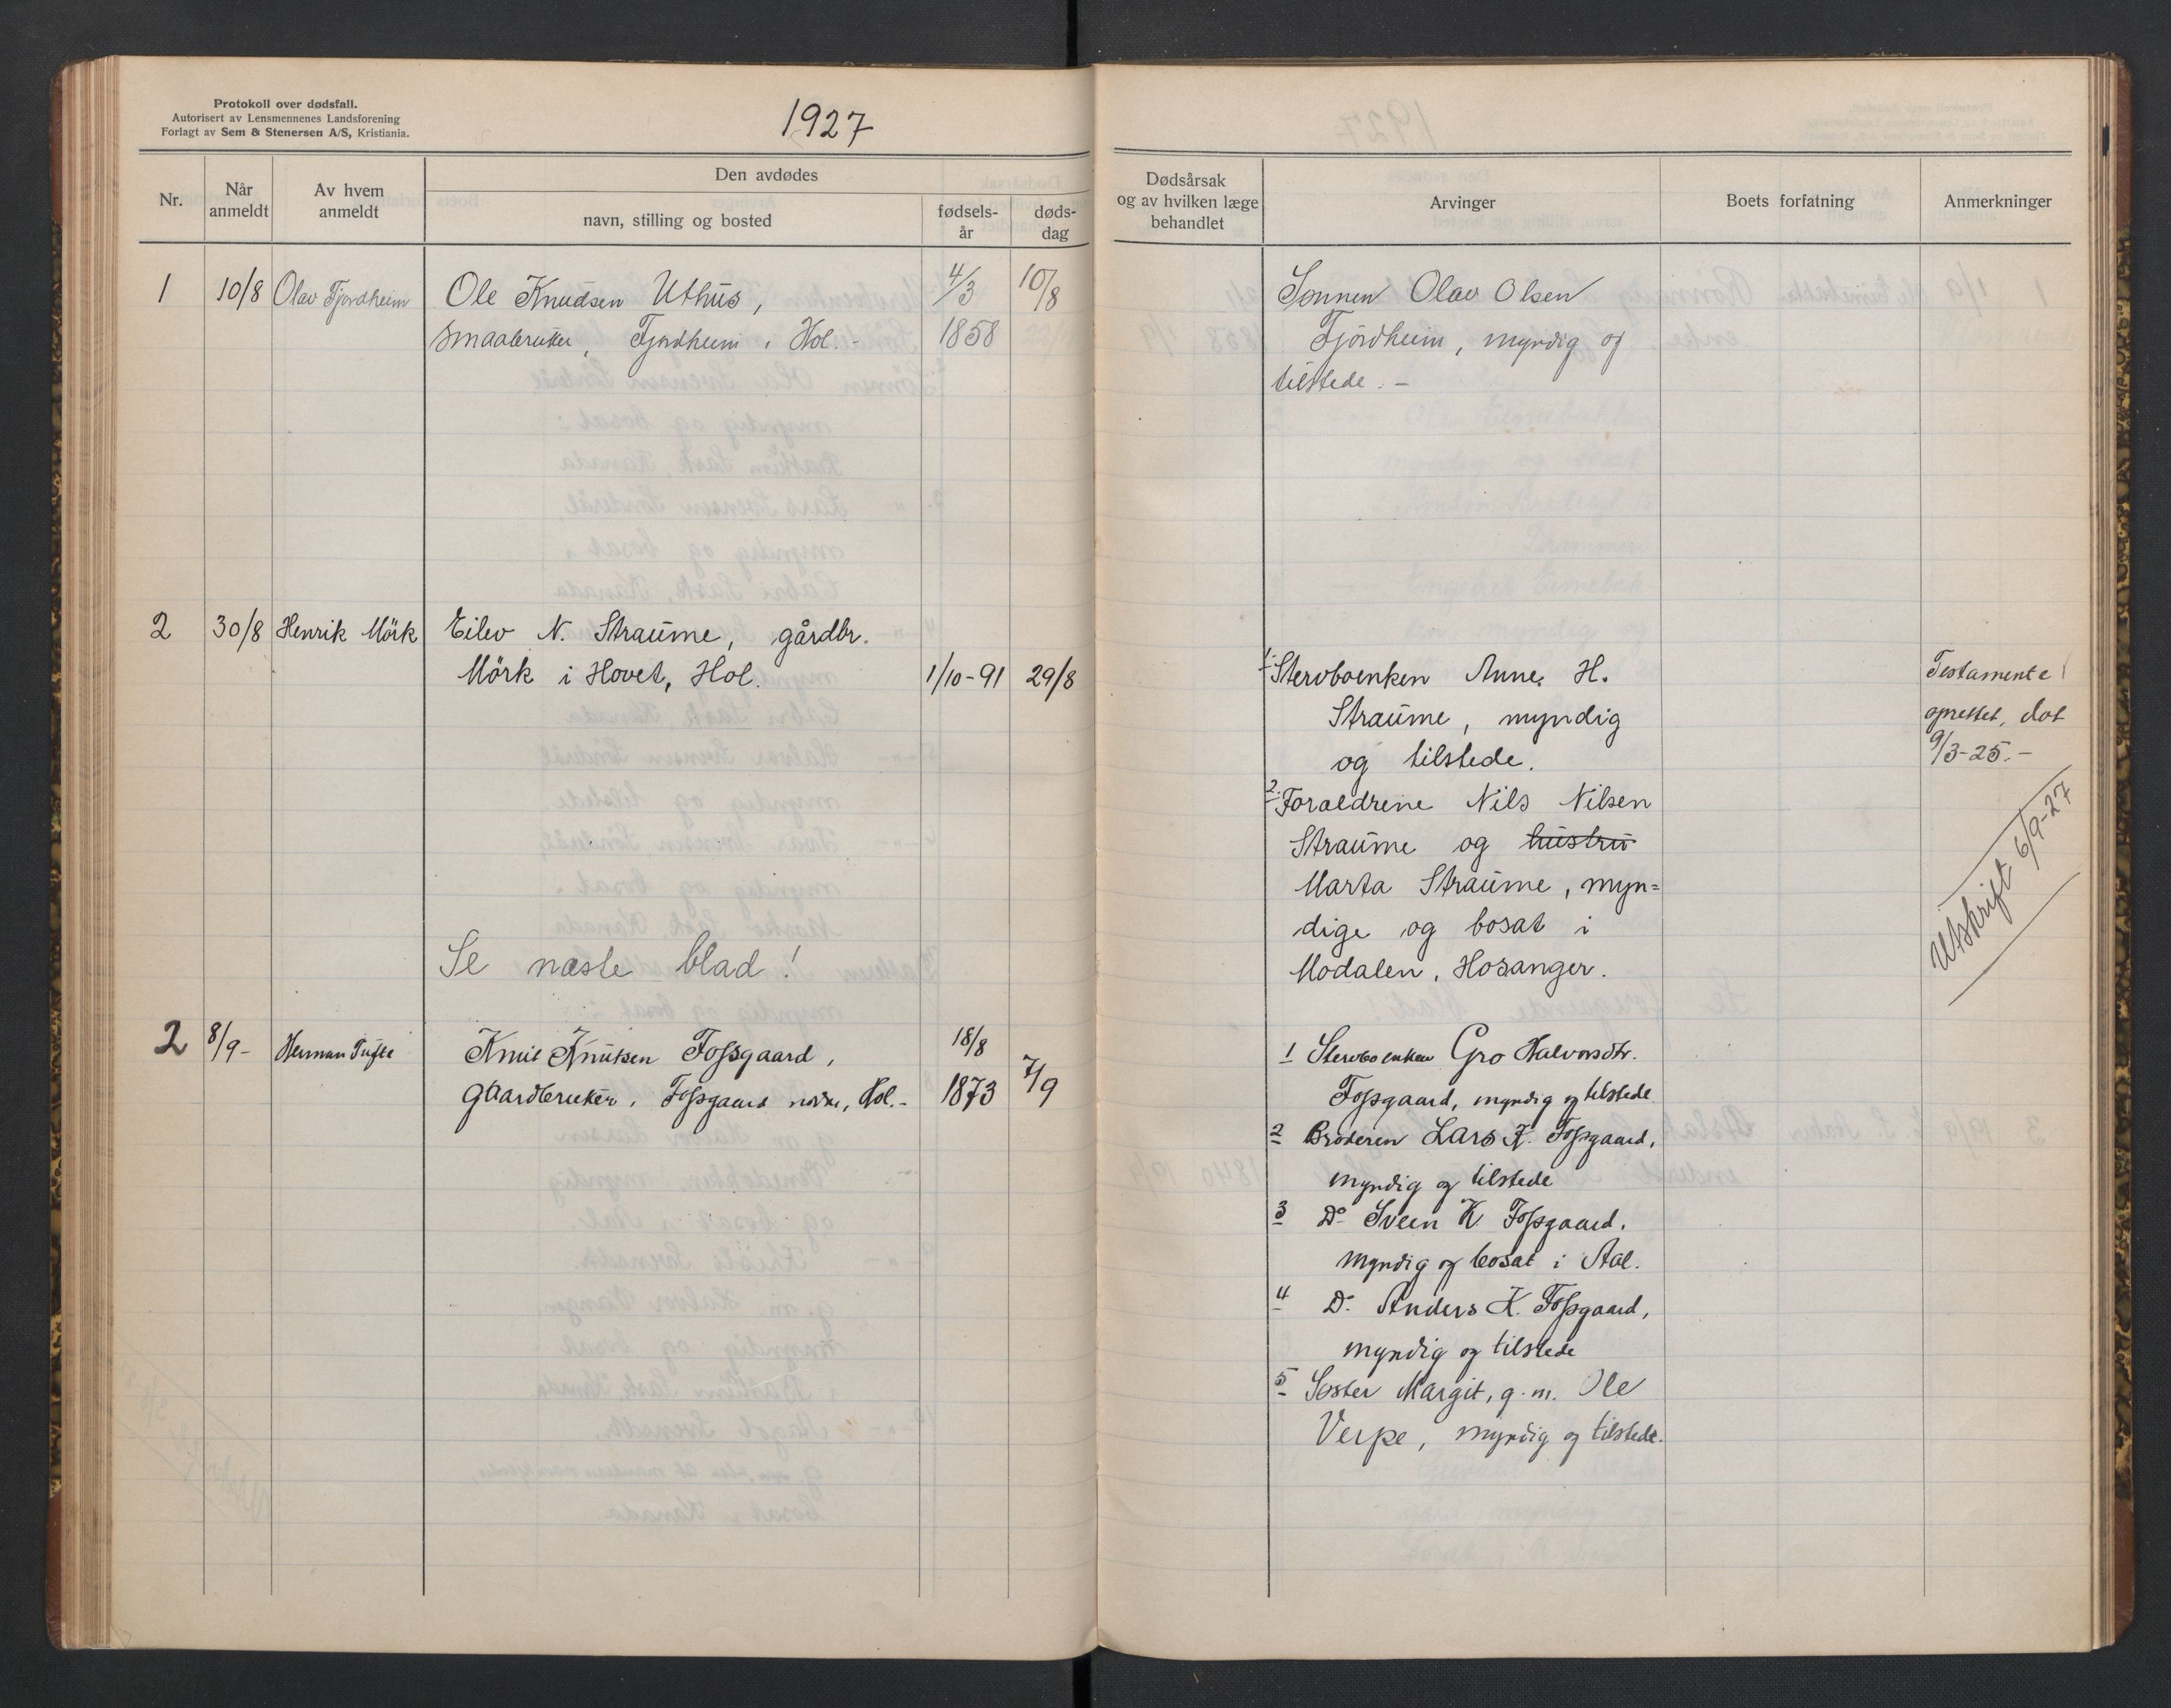 Protokoll over dødsfall.
Autorisert av Lensmennenes Landsforening
Forlagt av Sem & Stenersen A/S, Kristiania.
1927
Nr.
Når anmeldt
Av hvem anmeldt
Den avdødes
navn, stilling og bosted
fødsels-år
døds-dag
Dødsårsak og av hvilken læge behandlet
Arvinger
Boets forfatning
Anmerkninger
1 10/8 Olav Fjordheim Ole Knudsen Uthus, 4/3 10/8
smaabruker, Fjordheim i Hol. - 1858
Sønnen Olav Olsen
Fjordheim, myndig og
tilstede. -
2 30/8 Henrik Mörk Eilev N. Straume, gårdbr.
Mörk i Hovet, Hol. 1/10-91 29/8
1. Stervboenken Anne H.
Straume, myndig
og tilstede.
2. Foraeldrene Nils Nilsen
Straume og hustru
Marta Straume, myn=
dige og bosat i
Modalen, Hosanger.
Testamente
oprettet, dat
9/3-25.-
Utskrift 6/9-27
Se næste blad!
2 8/9- Herman Tufte Knut Knutsen Fossgaard, 18/8
gaardbruker, Fossgaard nordre, Hol.- 1873 7/9
1 Stervboenken Gro Halvorsdtr.
Fossgaard, myndig og tilstede.
2 Broderen Lars K. Fossgaard,
myndig og tilstede
3 Do Svein K Fossgaard,
myndig og bosat i Aal.
4 Do Anders K. Fossgaard,
myndig og tilstede
5 Søster Margit, g.m. Ole
Verpe, myndig og tilstede.